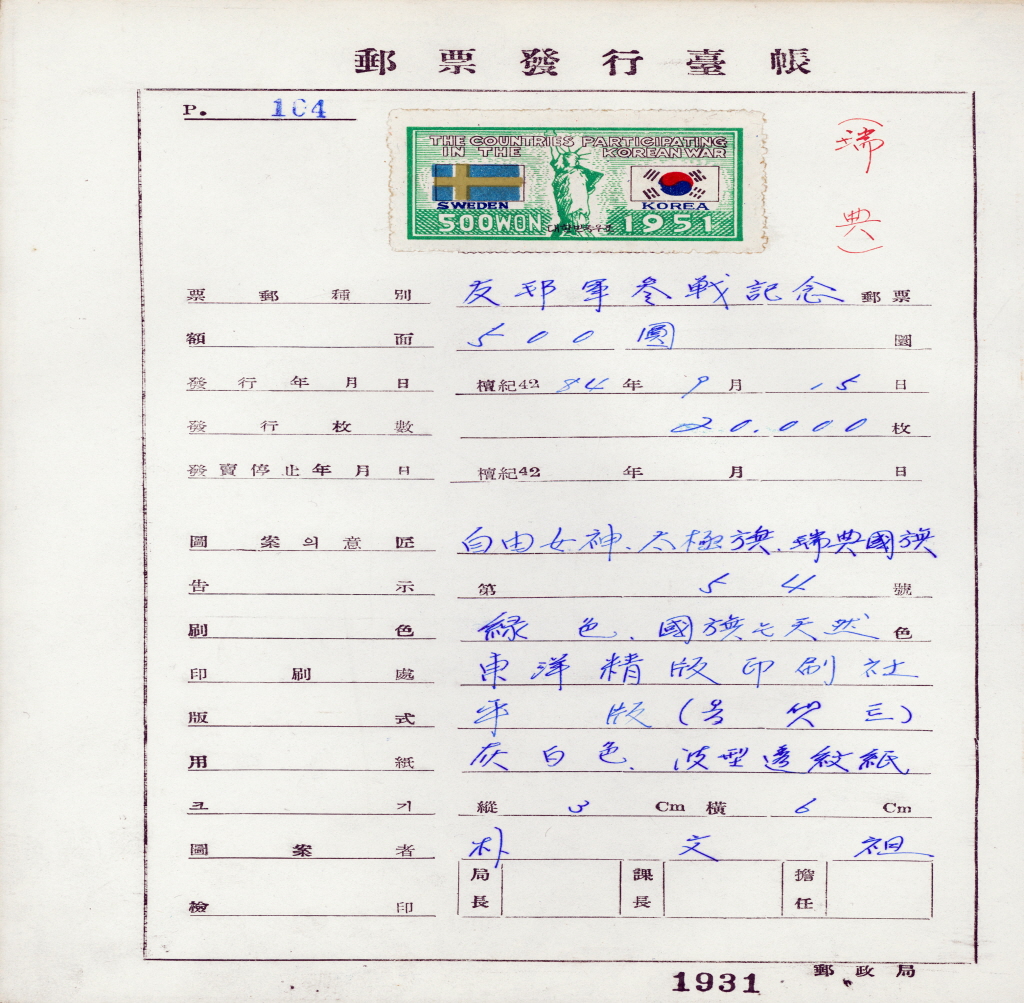 郵票發行臺帳
P. 104
(瑞典)
THE COUNTRIES PARTICIPATING
IN THE KOREAN WAR
SWEDEN KOREA
500WON 1951
票郵種別 友邦軍參戰記念 郵票
額面 500圓 圜
發行年月日 檀紀42 84年 9月 15日
發行枚數 20.000枚
發賣停止年月日 檀紀42 年 月 日
圖案의意匠 自由女神、太極旗、瑞典國旗
告示 第 54 號
刷色 緑色、國旗는天然色
印刷處 東洋精版印刷社
版式 平版
用紙 灰白色、波型透紋紙
크기 縱 3 Cm 橫 6 Cm
圖案者 朴文祖
檢印 局長 課長 擔任
郵政局
1931